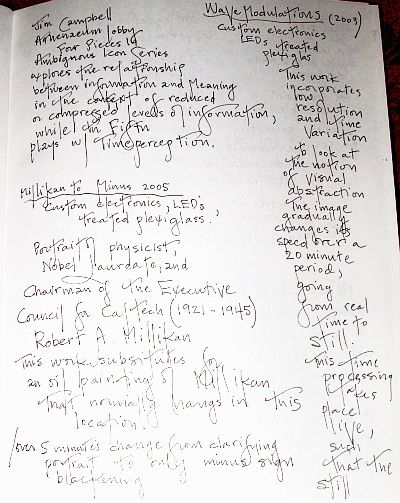 Jim Campbell
Athenaeum lobby
Four Pieces in
Ambiguous Icon Series
explores the relationship
between information and Meaning
in the context of reduced
or compressed levels of information,
while the Fifth
plays w/ time perception.
Millikan to Minus 2005
Custom electronics, LED's
treated plexiglass.
Portrait of physicist,
Nobel laureate, and
Chairman of the Executive
Council for Caltech (1921-1945)
Robert A. Millikan
This work substitutes for
an oil painting of Millikan
that normally hangs in this
location.
over 5 minutes change from clarifying
portrait to only minus sign
blackening
Wave Modulations (2003)
Custom electronics
LEDs treated
plexiglas
This work
incorporates
low
resolution
and time
variation
to look at
the notion
of visual
abstraction
The image
gradually
changes its
speed over a
20 minute
period,
going
from real
time to
still.
This time
processing
takes
place
live,
such
that the
still